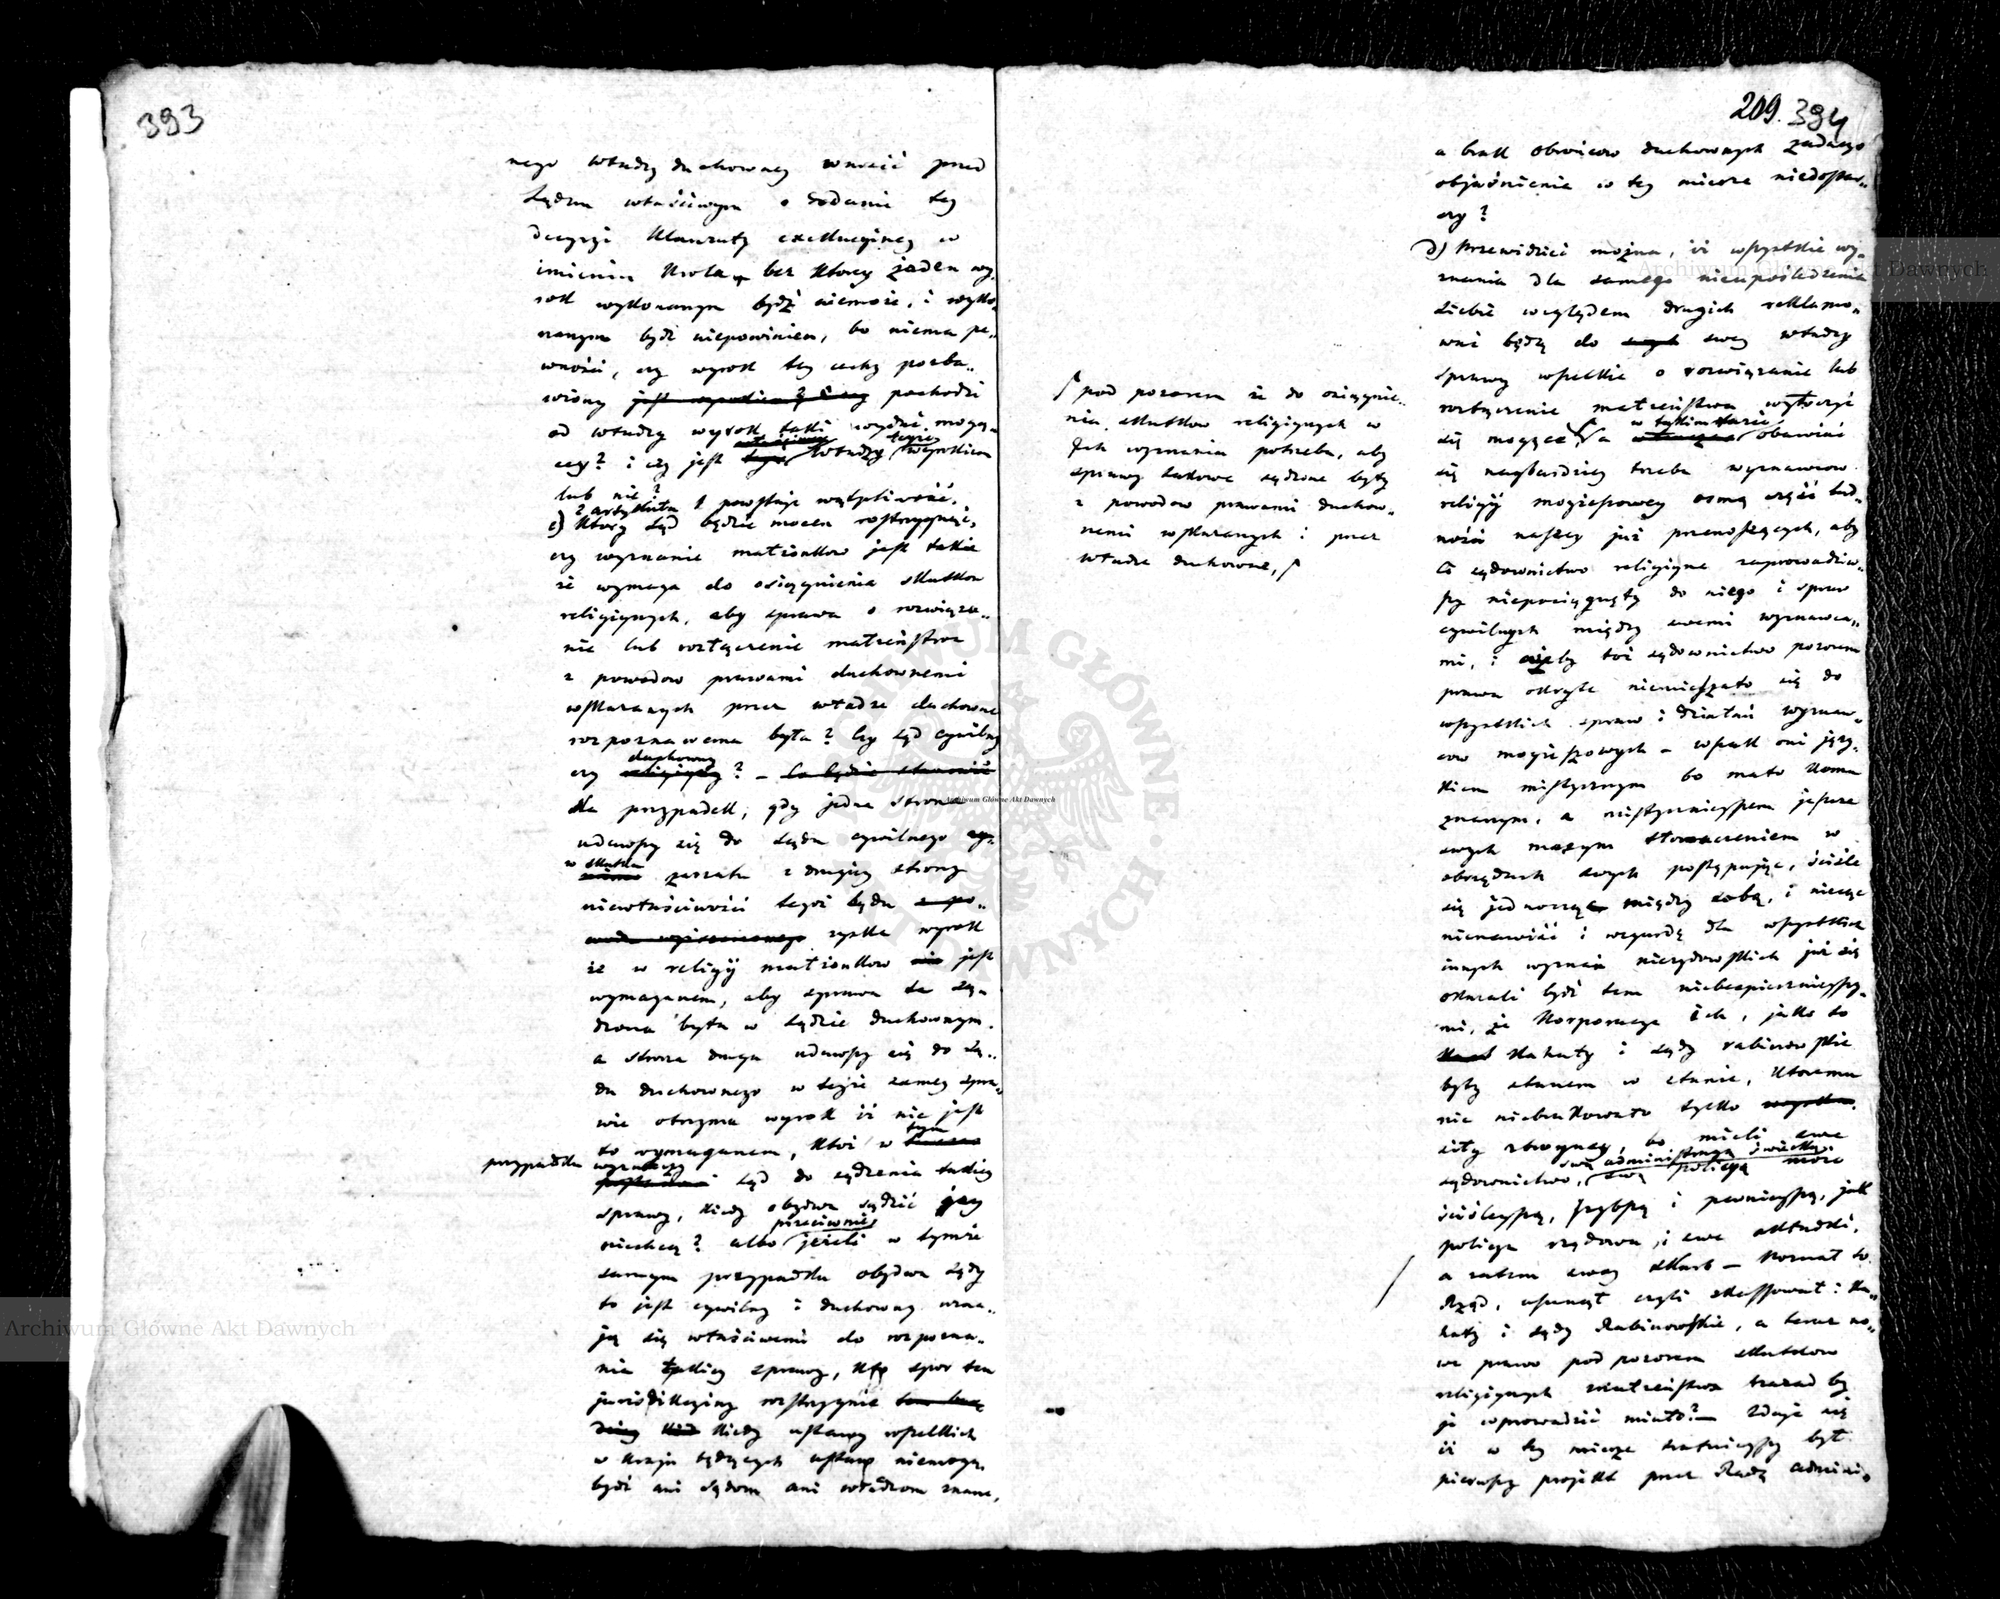 393
nego władzy duchowney wnosić przed
Sądem właściwym o dodanie tey
decyzyi klauzuly exekucyiney w
imieniu Krola, bez ktorey żaden wy„
rok wykonanym bydź niemoże, i wyko„
nanym bydź niepowinien, bo niema pe„
wności, czy wyrok tey cechy pozba„
wiony pochodzi
od władzy wyrok taki wydać mogą„
cey? i czy jest władzy wszystkiem
lub nie?
z artykułu 1 powstaje wątpliwość,
c) ktory Sąd będzie mocen rozstrzygnąć,
czy wyznanie małżonkow jest takie
że wymaga do osiągnienia skutkow
religiynych, aby sprawa o rozwiąza„
nie lub rozłączenie małżeństwa
z powodow prawami duchownemi
wskazanych przez władze duchowne
rozpoznawana była? Czy sąd cywilny
duchowny
czy religiyny? – Co będzie stanowić
Na przypadek, gdy jedna strona
udawszy się do sądu cywilnego
w skutku
zarzutu z drugiey strony
niewłaściwości tegoż sądu
zyska wyrok
że w religij małżonkow nie jest
wymaganem, aby sprawa ta są„
dzona była w sądzie duchownym.
a strona druga udawszy się do są„
du duchownego w teyże samey spra„
wie otrzyma wyrok iż nie jest
to wymaganem, ktoż w tym
przypadku wyznaczy
sąd do sądzenia takiey
sprawy, kiedy obydwa sądzić jey
przeciwnie
niechcą? albo jeżeli w tymże
samym przypadku obydwa sądy
to jest cywilny i duchowny uzna„
ją się właściwemi do rozpozna„
nia takiey sprawy, kto spor ten
jurisdikcyiny rozstrzygnie
kiedy ustawy wszelkich
w kraju będących ustaw niemogą
bydź ani sądom ani władzom znane,
209. 394
ſ pod pozorem że do osiągnie„
nia skutkow religiynych w
Ich wyznaniu potrzeba, aby
sprawy takowe sądzone były
z powodow prawami duchow„
nemi wskazanych i przez
władze duchowne, ſ
a brak obroncow duchownych żadnego
objaśnienia w tey mierze niedostar„
czy?
d) Przewidzieć można, iż wszystkie wy„
znania dla samego nieupośledzenia
siebie względem drugich reklamo„
wać będą do swey władzy
sprawy wszelkie o rozwiązanie lub
rozłączenie małżeństwa wytoczyć
w tytkim razie
się mogące ſ a obawiać
się naybardziey trzeba wyznawcow
religij moyżeszowey osmą część lud„
ności naszey już przenoszących, aby
Ci sądownictwo religiyne zaprowadziw„
szy niepociągnęły do niego i spraw
cywilnych między swemi wyznawca„
mi, i ażeby toż sądownictwo pozorem
prawa okryte niemieszało się do
wszystkich spraw i działań wyznaw„
cow moyżeszowych – wszak oni języ„
kiem mistycznym bo mało komu
znanym, a mistycznieyszem jeszcze
swych maxym tłomaczeniem w
obrzędach swych postępując, ściśle
się jednocząc między sobą, i niecąc
nienawiść i wzgardę dla wszystkich
innych wyznań nieżydowskich już się
okazali bydź tem niebezpiecznieyszy„
mi, że Korporacye Ich, jako to
Kahały i sądy rabinowskie
były stanem w stanie, ktoremu
nic niebrakowało tylko
siły zbroyney, bo mieli swe
swą administracyą świecką
sądownictwo, swą policyą może
ściśleyszą, szybszą i pewnieyszą, jak
policya rządowa, i swe składki,
a zatem swoy skarb – Poznał to
Rząd, usunął czyli skassował: Ka„
hały i sądy Rabinowskie, a teraz no„
we prawo pod pozorem skutkow
religiynych małżeństwa nazad by
je wprowadzić miało? – Zdaje się
iż w tey mierze trafnieyszy był
pierwszy projekt przez Radę admini„